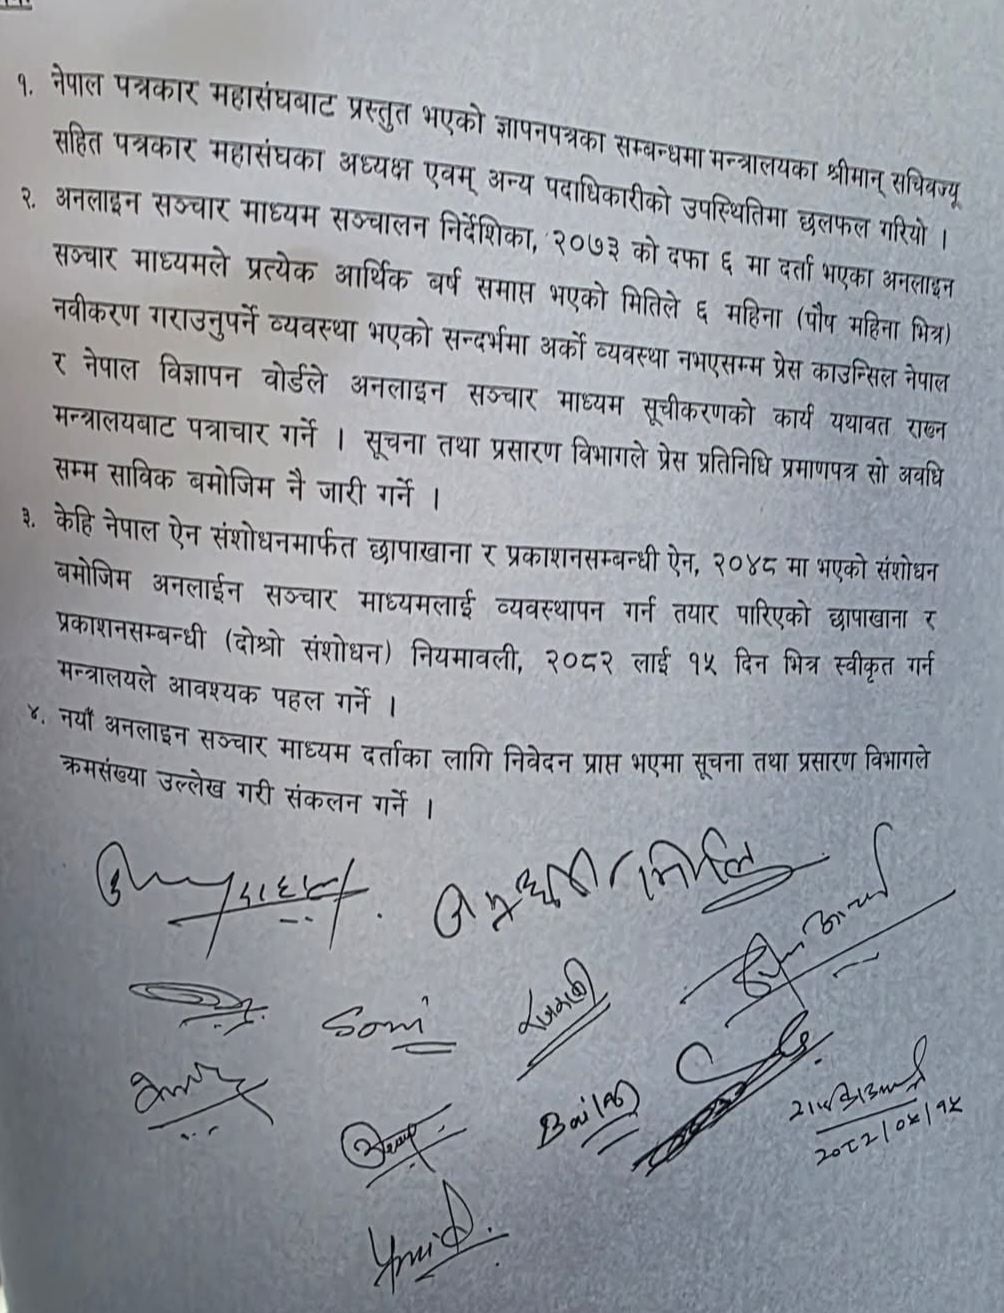 १. नेपाल पत्रकार महासंघबाट प्रस्तुत भएको ज्ञापनपत्रका सम्बन्धमा मन्त्रालयका श्रीमान् सचिवज्यू
सहित पत्रकार महासंघका अध्यक्ष एवम् अन्य पदाधिकारीको उपस्थितिमा छलफल गरियो ।
२. अनलाइन सञ्चार माध्यम सञ्चालन निर्देशिका, २०७३ को दफा ६ मा दर्ता भएका अनलाइन
सञ्चार माध्यमले प्रत्येक आर्थिक वर्ष समाप्त भएको मितिले ६ महिना (पौष महिना भित्र)
नवीकरण गराउनुपर्ने व्यवस्था भएको सन्दर्भमा अर्को व्यवस्था नभएसम्म प्रेस काउन्सिल नेपाल
र नेपाल विज्ञापन वोर्डले अनलाइन सञ्चार माध्यम सूचीकरणको कार्य यथावत राख्न
मन्त्रालयबाट पत्राचार गर्ने । सूचना तथा प्रसारण विभागले प्रेस प्रतिनिधि प्रमाणपत्र सो अवधि
सम्म साविक बमोजिम नै जारी गर्ने ।
३. केहि नेपाल ऐन संशोधनमार्फत छापाखाना र प्रकाशनसम्बन्धी ऐन, २०४८ मा भएको संशोधन
बमोजिम अनलाईन सञ्चार माध्यमलाई व्यवस्थापन गर्न तयार पारिएको छापाखाना र
प्रकाशनसम्बन्धी (दोश्रो संशोधन) नियमावली, २०८२ लाई १५ दिन भित्र स्वीकृत गर्न
मन्त्रालयले आवश्यक पहल गर्ने ।
४. नयाँ अनलाइन सञ्चार माध्यम दर्ताका लागि निवेदन प्राप्त भएमा सूचना तथा प्रसारण विभागले
क्रमसंख्या उल्लेख गरी संकलन गर्ने ।
Soni
२०८२/०५/१५